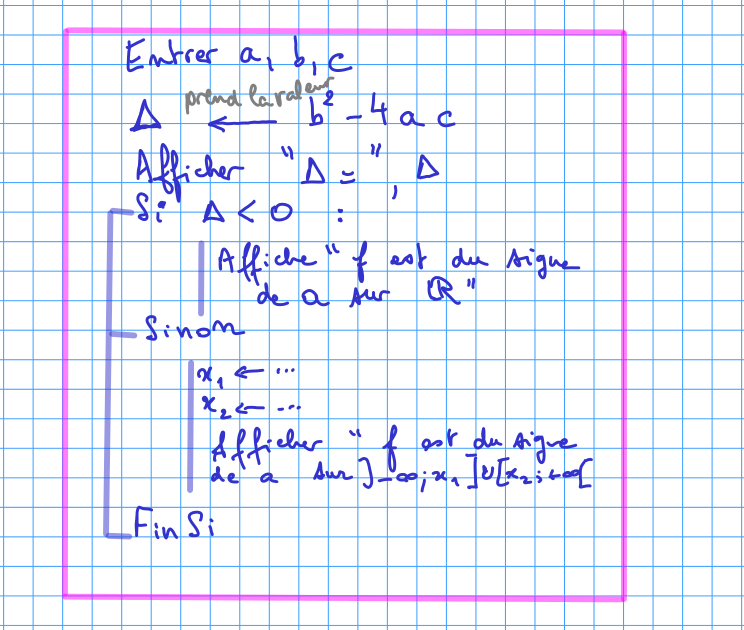 Entrer a, b, c
prend la valeur
Δ ← b² - 4 a c
Afficher "Δ = ", Δ
Si Δ < 0 :
Affiche " f est du signe
de a sur ℝ "
Sinon
x₁ ← ...
x₂ ← ...
Afficher " f est du signe
de a sur ]-∞; x₁] ∪ [x₂; +∞[
Fin Si